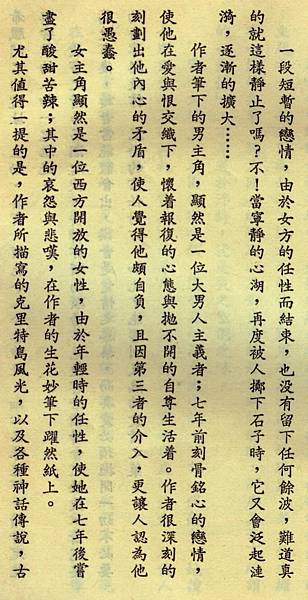 一段短暫的戀情，由於女方的任性而結束，也没有留下任何餘波，難道真
的就這樣靜止了嗎？不！當寧靜的心湖，再度被人擲下石子時，它又會泛起漣
漪，逐漸的擴大……
作者筆下的男主角，顯然是一位大男人主義者；七年前刻骨銘心的戀情，
使他在愛與恨交織下，懷着報復的心態與拋不開的自尊生活着。作者很深刻的
刻劃出他內心的矛盾，使人覺得他頗自負，且因第三者的介入，更讓人認為他
很愚蠢。
女主角顯然是一位西方開放的女性，由於年輕時的任性，使她在七年後嘗
盡了酸甜苦辣；其中的哀怨與悲嘆，在作者的生花妙筆下躍然紙上。
尤其值得一提的是，作者所描寫的克里特島風光，以及各種神話傳說，古